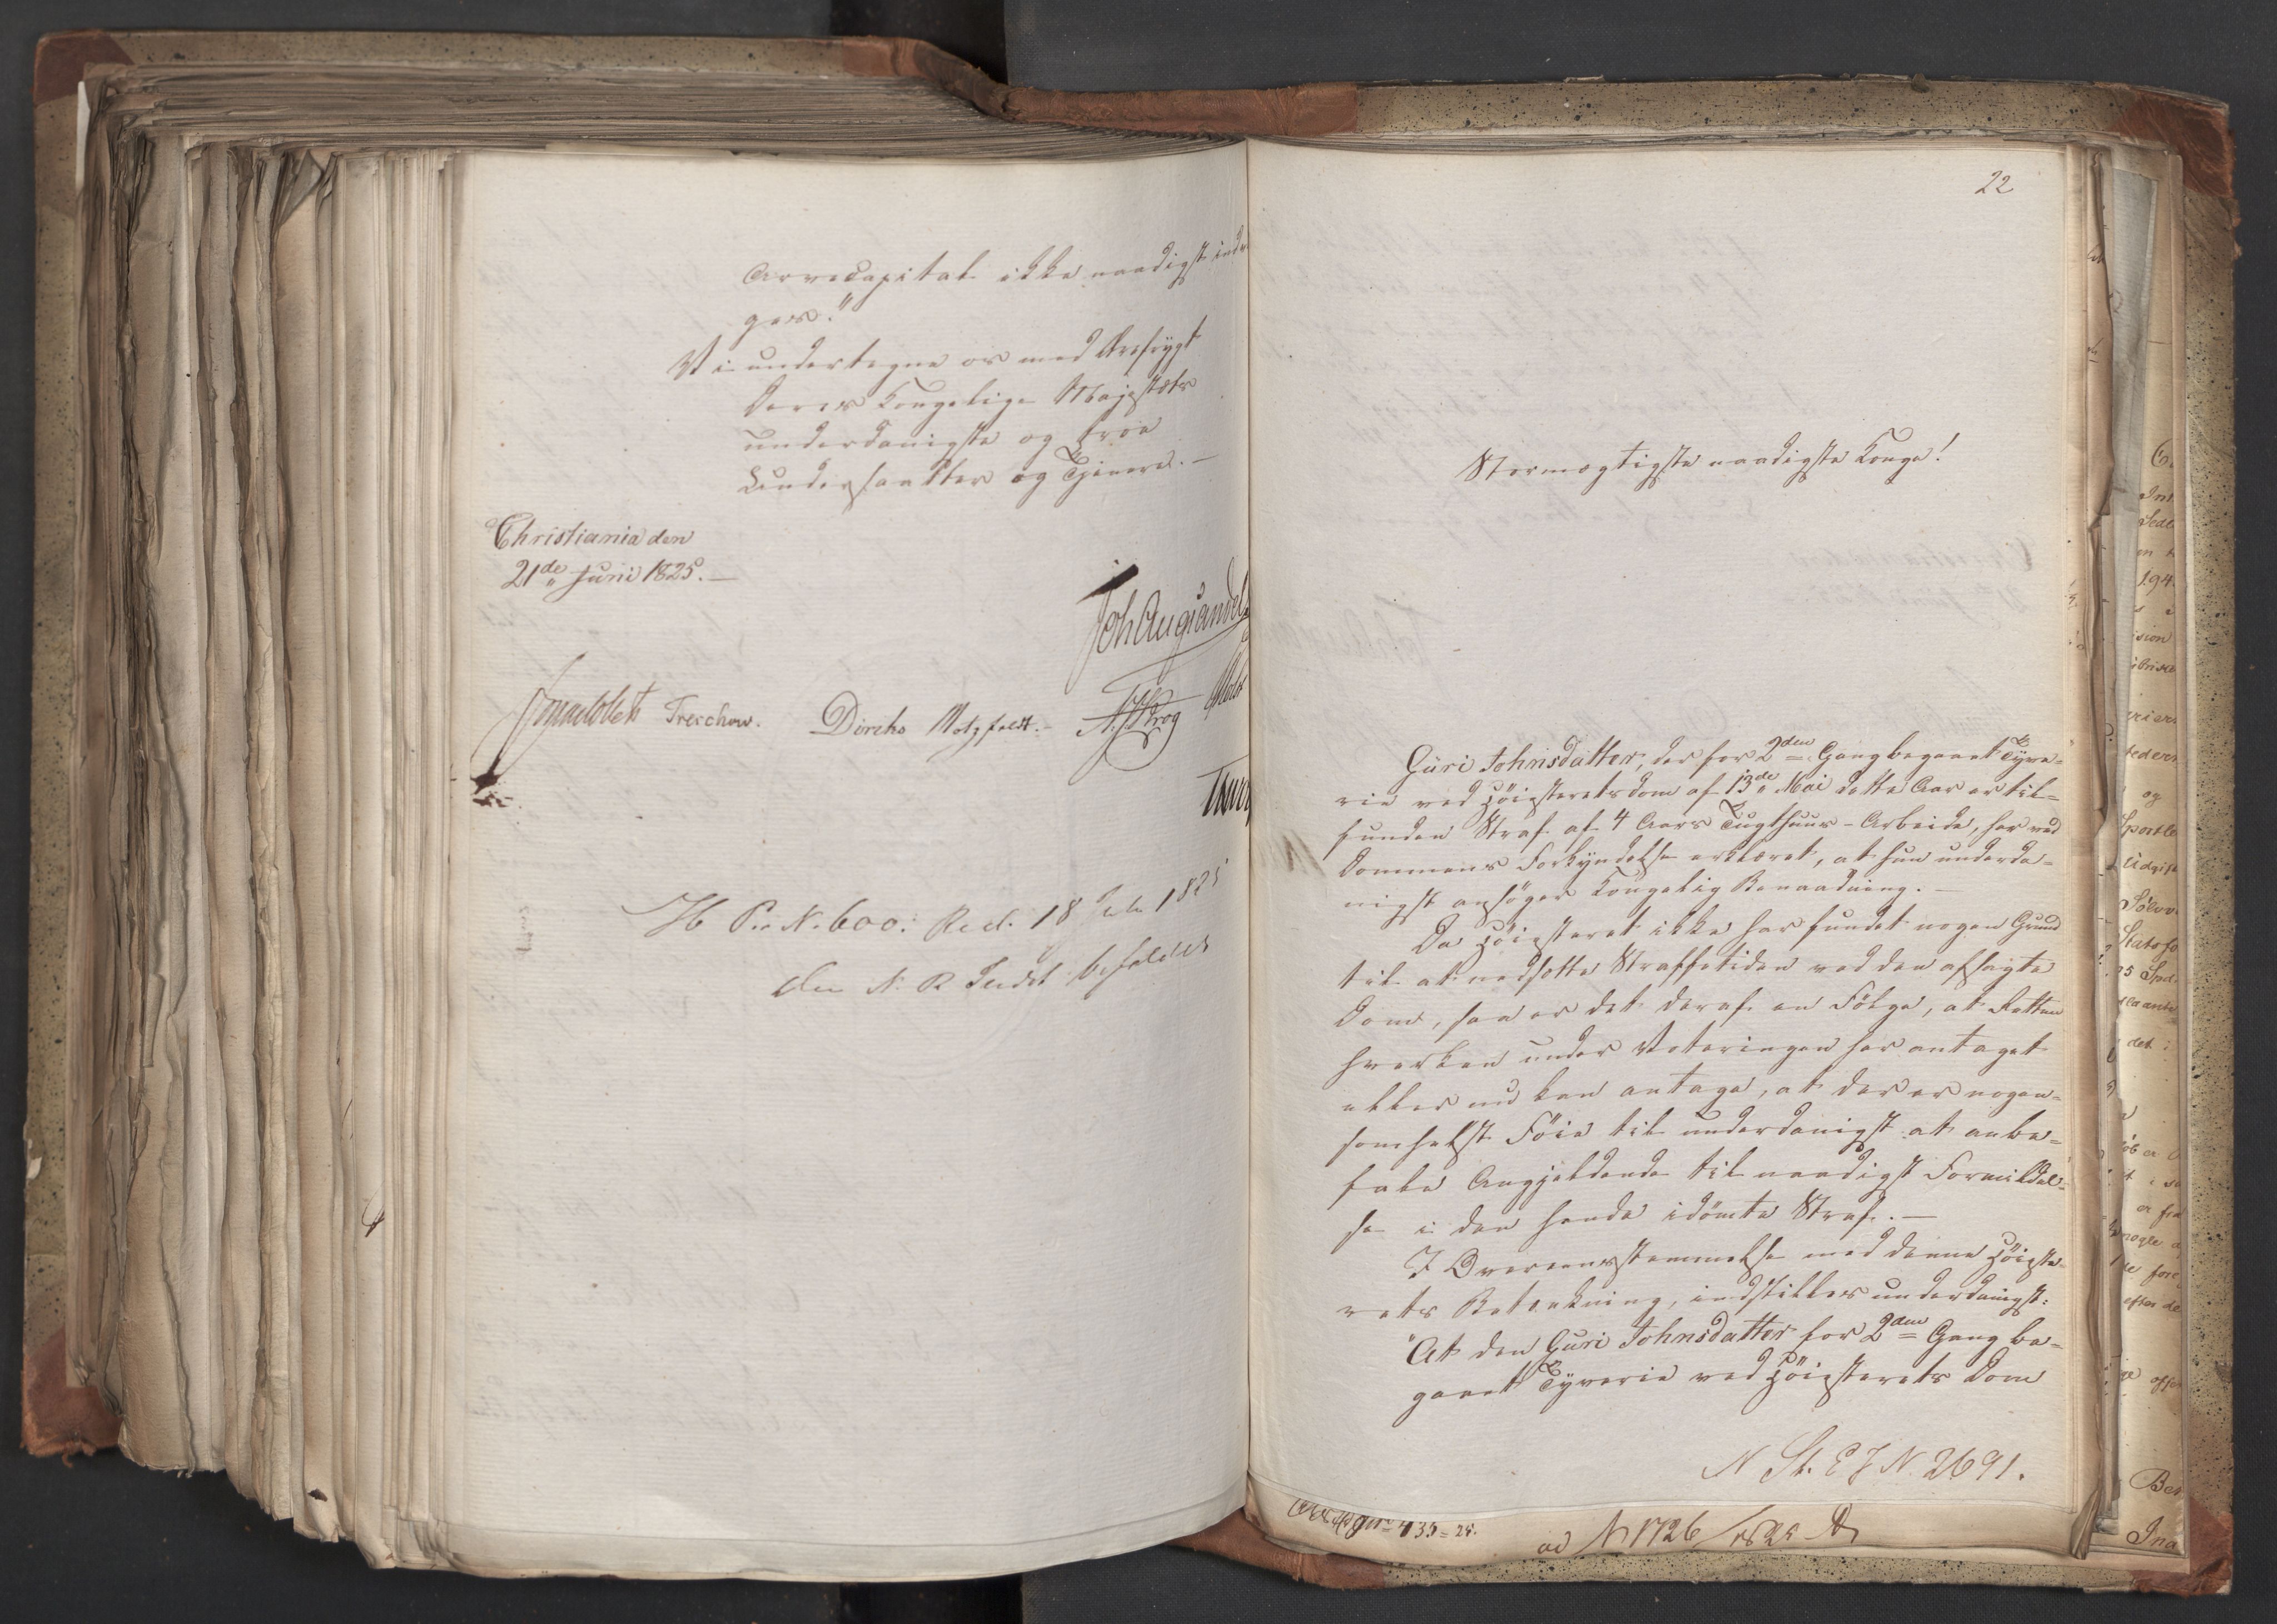 Arvecapital ikke naadigst inddra
ges."
Vi undertegne os med Ærefrygt
Deres Kongelige Majestæts
underdanigste og troe
Undersaatter og Tjenere. —
Christiania den
21de Juni 1825. —
Joh Aug Sandels
Jonas Collett Treschow. Diriks Motzfeldt. — A. J. Krog
H P. N. 600. Red. 18 1825
den N. R Indst befaldet
22
Stormægtigste naadigste Konge!
Guri Johnsdatter, der for 2den Gang begaaet Tyve=
rie ved Höiesteretsdom af 13de Mai dette Aar er til=
funden Straf af 4 Aars Tugthuus-Arbeide, har ved
Dommens Forkyndelse erklæret, at hun underda=
nigst ansöger Kongelig Benaadning. —
Da Höiesteret ikke har fundet nogen Grund
til at nedsætte Straffetiden ved den afsagte
Dom, saa er det deraf en Fölge, at Retten
hverken under Voteringen har antaget
eller nu kan antage, at der er nogen=
somhelst Föie til underdanigst at anbe=
fale Angjeldende til naadigst Formildel=
se i den hende idömte Straf. —
I Overeensstemmelse med denne Höieste=
rets Betænkning, indstilles underdanigst:
"At den Guri Johnsdatter for 2den Gang be=
gaaet Tyverie ved Höiesterets Dom
N St. E J N. 2691.
435=25.
ad N 1726/1825